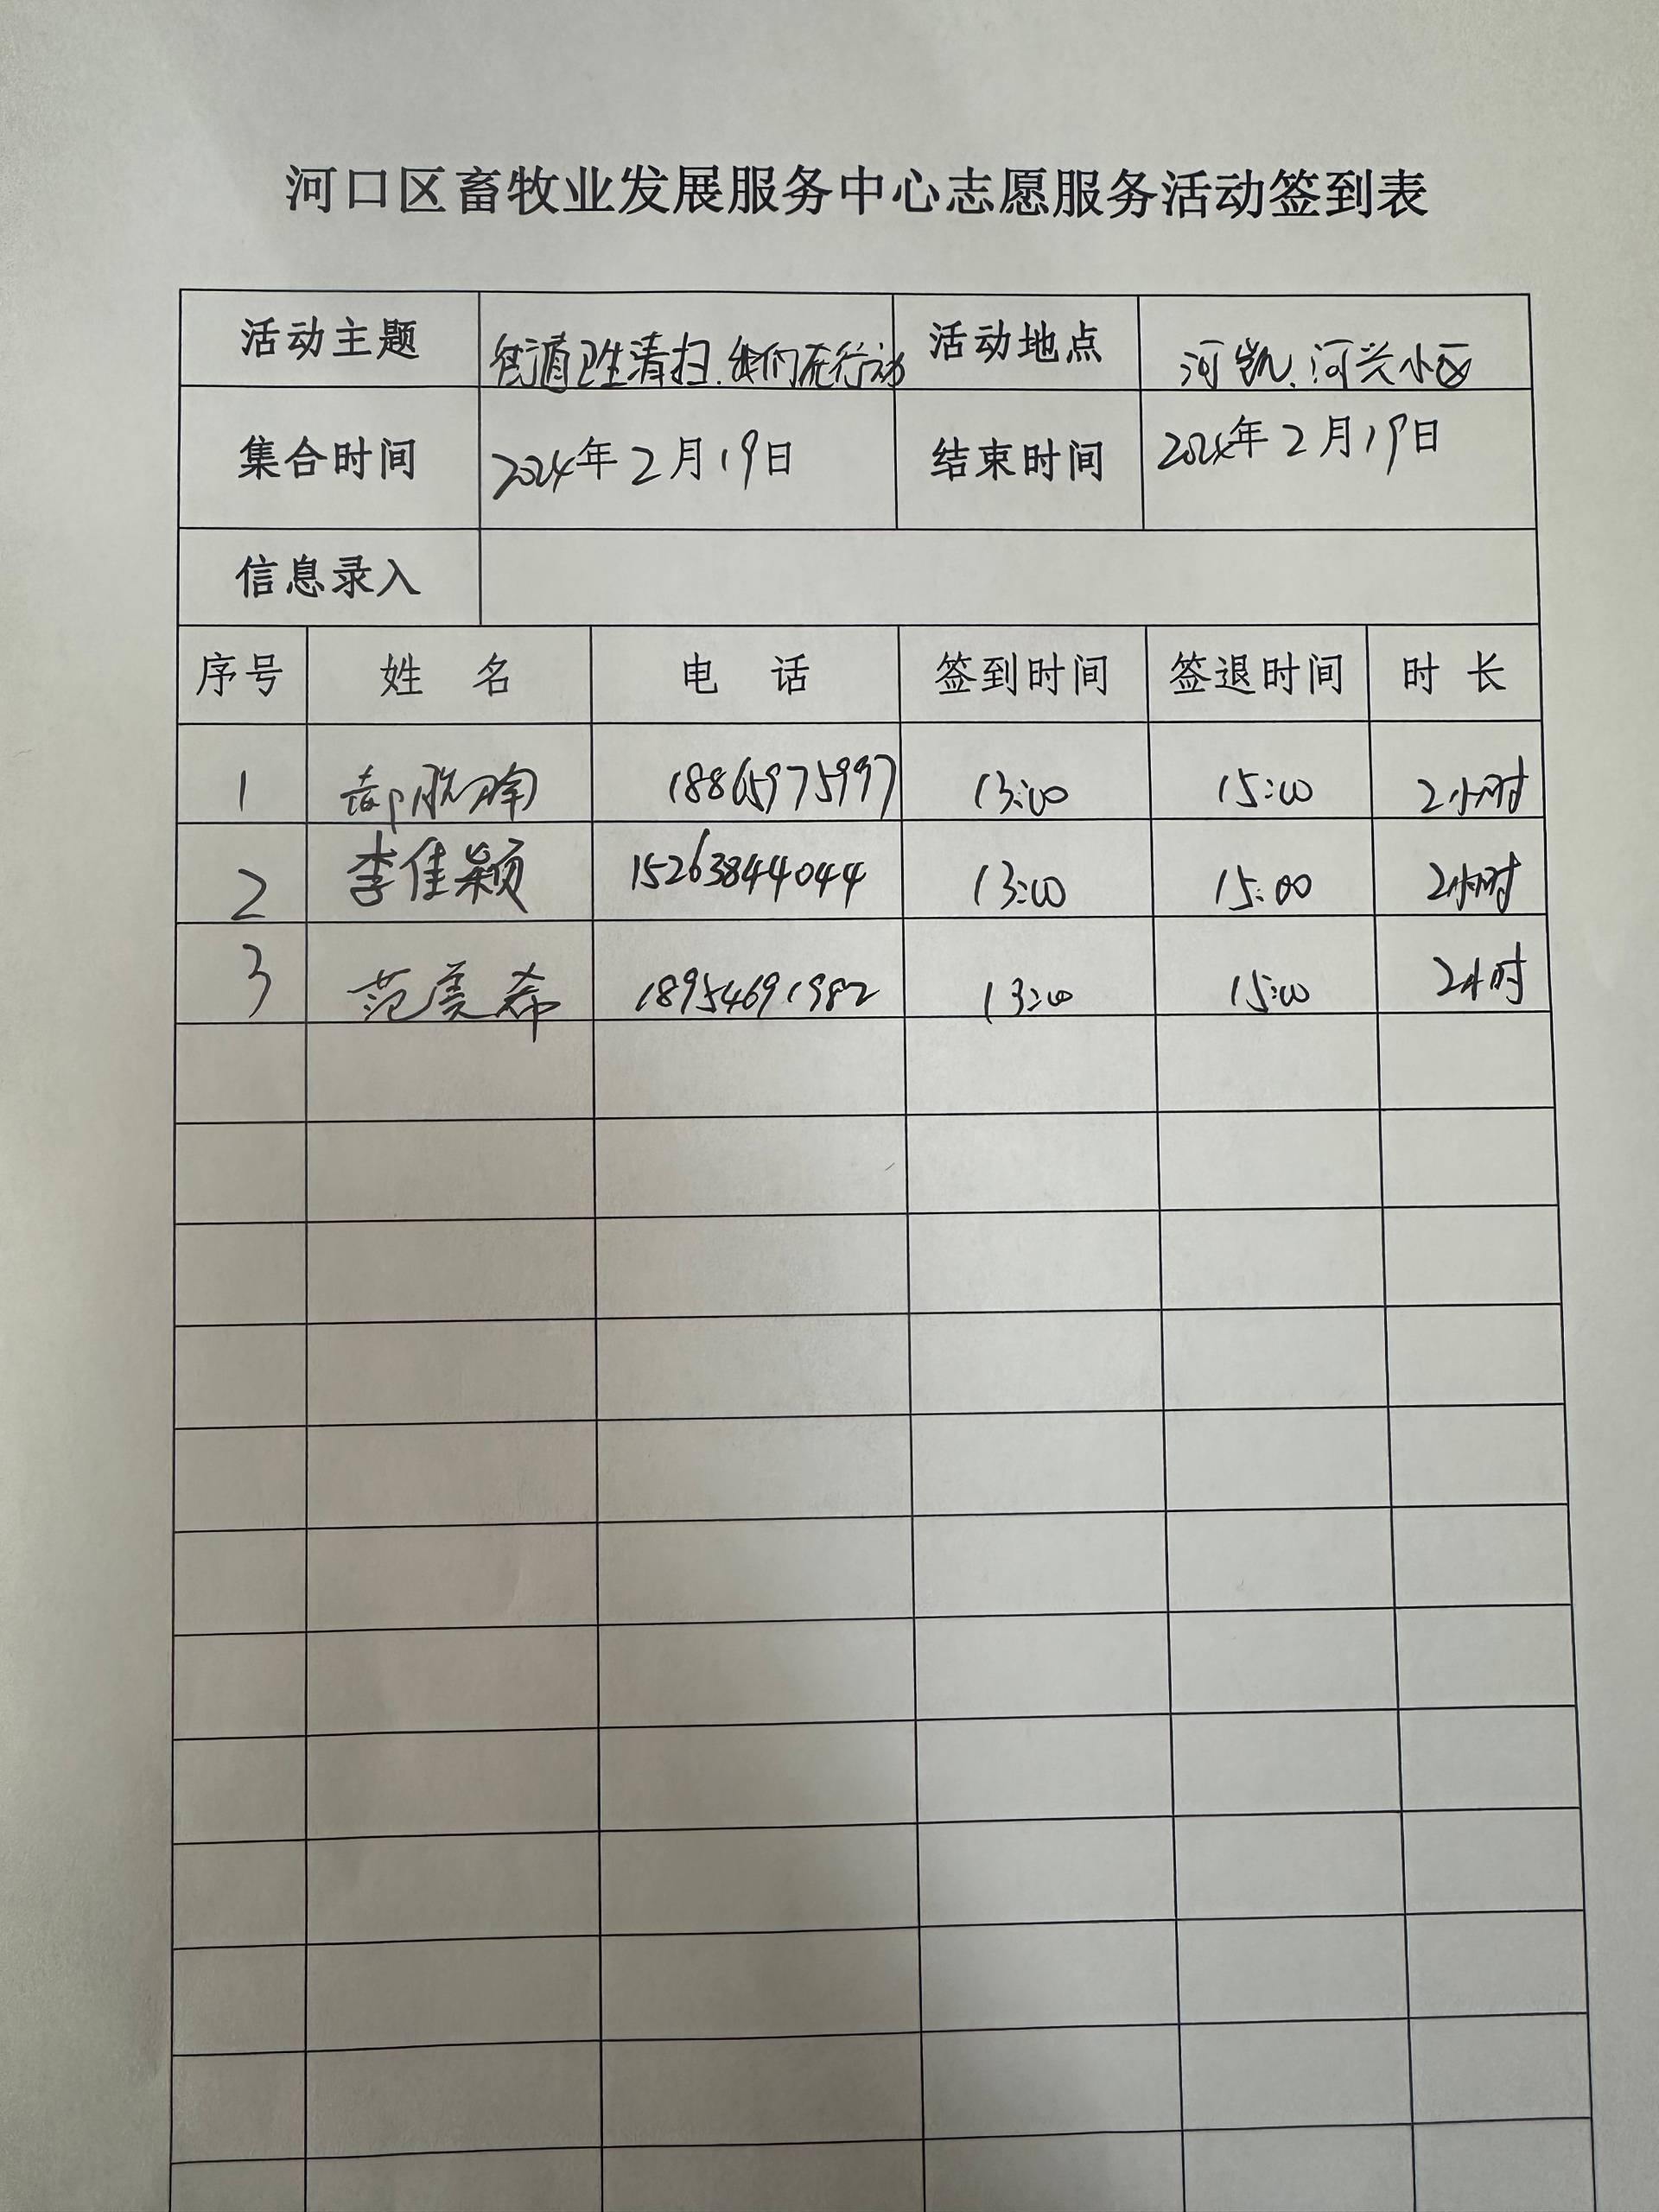 河口区畜牧业发展服务中心志愿服务活动签到表
活动主题 街道卫生清扫.我们在行动 活动地点 河凯.河兴小区
集合时间 2024年2月19日 结束时间 2024年2月19日
信息录入
序号 姓 名 电 话 签到时间 签退时间 时 长
1 18865975997 13:00 15:00 2小时
2 李佳颖 15263844044 13:00 15:00 2小时
3 范美希 18954691982 13:00 15:00 2小时